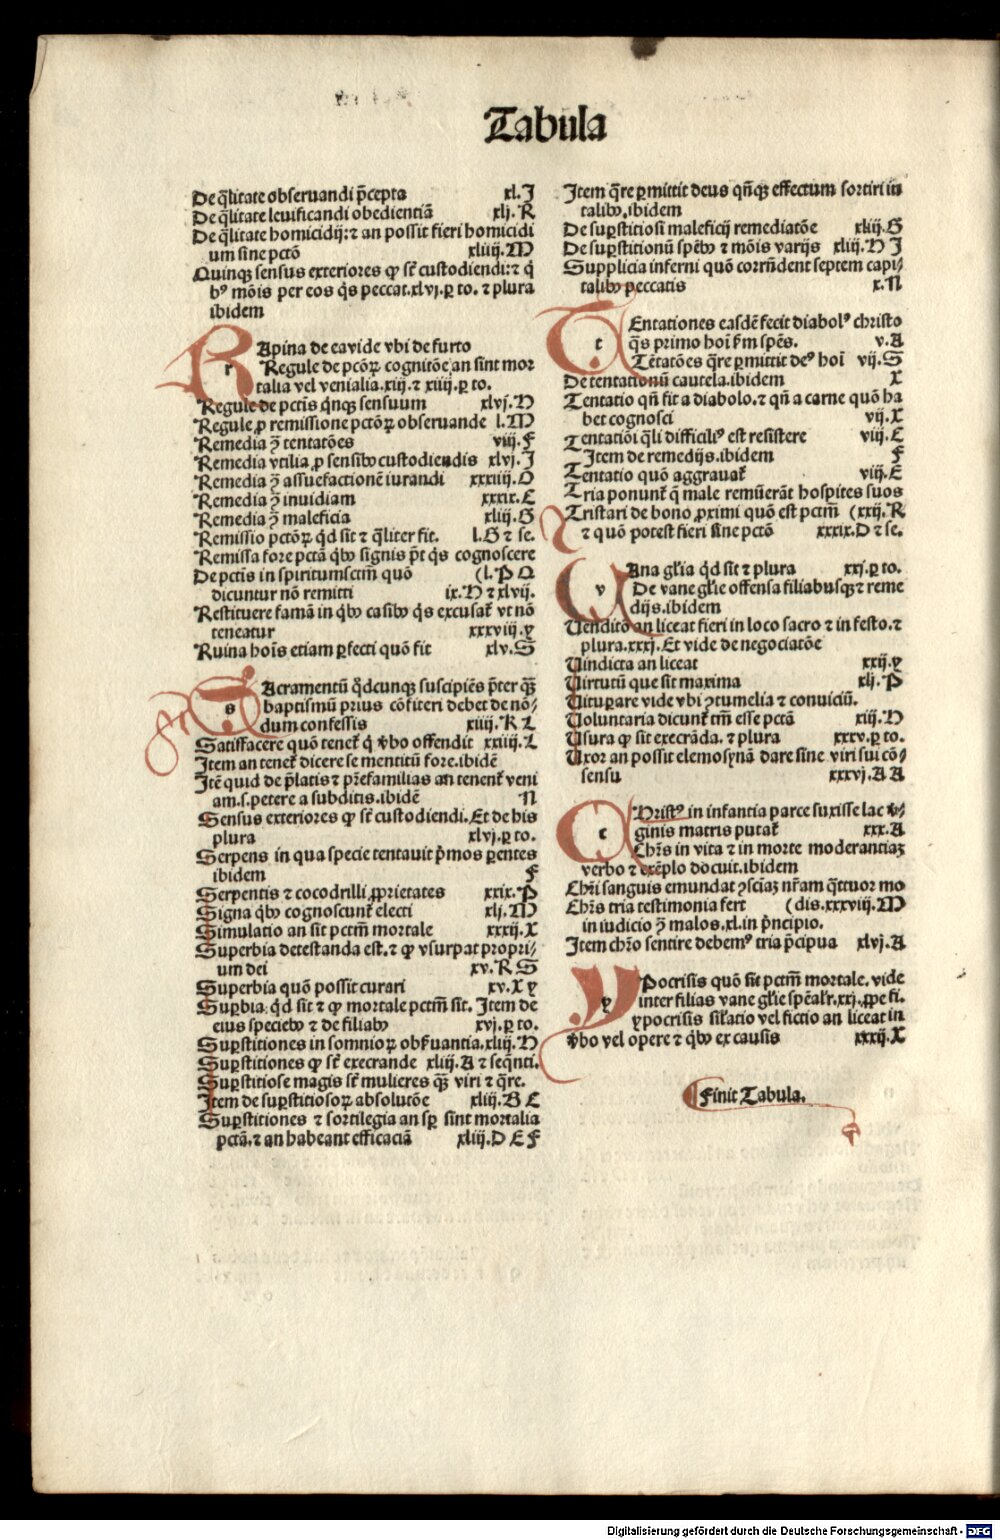 Tabula
De q̃litate obseruandi p̃cepta xl.J
De q̃litate leuificandi obedientiã xlj.R
De q̃litate homicidij: ⁊ an possit fieri homicidi
um sine pctõ xliiij.M
Quinq; sensus exteriores ꝙ sr̃ custodiendi: ⁊ q̃
bꝰ mõis per eos q̃s peccat.xlvj.ꝑ to. ⁊ plura
ibidem
Rapina de ea vide vbi de furto
Regule de pcõꝝ cognitõe an sint mor
talia vel venialia.xiij. ⁊ xiiij.ꝑ to.
Regule de pctis q̃nq; sensuum xlvj.H
Regule ꝓ remissione pctõꝝ obseruande l.M
Remedia ꝯ̃ tentatões viij.F
Remedia vtilia ꝓ sensibꝰ custodiendis xlvj.J
Remedia ꝯ̃ assuefactionẽ iurandi xxxiiij.O
Remedia ꝯ̃ inuidiam xxxix.E
Remedia ꝯ̃ maleficia xliij.G
Remissio pctõꝝ q̃d sit ⁊ q̃liter fit. l.G ⁊ se.
Remissa fore pctã q̃bꝰ signis p̃t q̃s cognoscere
De pctis in spiritumsctm̃ quõ (l.P Q
dicuntur nõ remitti ix.H ⁊ xlvij.
Restituere famã in q̃bꝰ casibꝰ q̃s excusat̃ vt nõ
teneatur xxxviij.y
Ruina hoĩs etiam ꝑfecti quõ fit xlv.S
Sacramentũ q̃dcunq; suscipiẽs p̃ter q̃ꝫ
baptismũ prius cõfiteri debet de nõ-
dum confessis xiiij.K L
Satisfacere quõ tenet̃ q̃ v̓bo offendit xxiiij.L
Item an tenet̃ dicere se mentitũ fore.ibidẽ
Itẽ quid de p̃latis ⁊ pr̃efamilias an tenent̃ veni
am.s.petere a subditis.ibidẽ N
Sensus exteriores ꝙ sr̃ custodiendi.Et de his
plura xlvj.ꝑ to.
Serpens in qua specie tentauit p̃mos ꝑentes
ibidem F
Serpentis ⁊ cocodrilli ꝓprietates xxix.P
Signa q̃bꝰ cognoscunt̃ electi xlj.M
Simulatio an sit pctm̃ mortale xxxij.X
Superbia detestanda est. ⁊ ꝙ vsurpat propri-
um dei xv.R S
Superbia quõ possit curari xv.X y
Suꝑbia. q̃d sit ⁊ ꝙ mortale pctm̃ sit. Item de
eius speciebꝰ ⁊ de filiabꝰ xvj.ꝑ to.
Suꝑstitiones in somnioꝝ obẜuantia.xliij.H
Suꝑstitiones ꝙ sr̃ execrande xliij.A ⁊ seq̃nti.
Suꝑstitiose magis sr̃ mulieres q̃ꝫ viri ⁊ q̃re.
Item de suꝑstitiosoꝝ absolutõe xliij.B C
Suꝑstitiones ⁊ sortilegia an sꝑ sint mortalia
pctã. ⁊ an habeant efficaciã xliij.D E F
Item q̃re ꝑmittit deus qñq; effectum sortiri in
talibꝰ.ibidem
De suꝑstitiosi maleficij remediatõe xliij.G
De suꝑstitionũ spẽbꝰ ⁊ mõis varijs xliij.H J
Supplicia inferni quõ corrñdent septem capi-
talibꝰ peccatis x.N
Tentationes easdẽ fecit diabolꝰ christo
q̃s primo hoĩ ẜm spẽs. v.A
Tẽtatões q̃re ꝑmittit deꝰ hoĩ vij.S
De tentationũ cautela.ibidem X
Tentatio qñ fit a diabolo. ⁊ qñ a carne quõ ha
bet cognosci vij.X
Tentatiõi q̃li difficiliꝰ est resistere viij.C
Item de remedijs.ibidem F
Tentatio quõ aggrauat̃ viij.E
Tria ponunt̃ q̃ male remũerãt hospites suos
Tristari de bono ꝓximi quõ est pctm̃ (xxij.R
⁊ quõ potest fieri sine pctõ xxxix.D ⁊ se.
Vana gl̃ia q̃d sit ⁊ plura xxj.ꝑ to.
De vane gl̃ie offensa filiabusq; ⁊ reme
dijs.ibidem
Venditõ an liceat fieri in loco sacro ⁊ in festo. ⁊
plura.xxxj.Et vide de negociatõe
Vindicta an liceat xxij.y
Virtutũ que sit maxima xlj.P
Vituꝑare vide vbi ꝯtumelia ⁊ conuiciũ.
Voluntaria dicunt̃ tm̃ esse pctã xiij.H
Vsura ꝙ sit execrãda. ⁊ plura xxxv.ꝑ to.
Vxor an possit elemosynã dare sine viri sui cõ-
sensu xxxvj.A A
Christꝰ in infantia parce suxisse lac v̓-
ginis matris putat̃ xxx.A
Chr̃s in vita ⁊ in morte moderantiaꝫ
verbo ⁊ exẽplo docuit.ibidem
Chr̃i sanguis emundat ꝯsciaꝫ nr̃am q̃ttuor mo
Chr̃s tria testimonia fert (dis.xxxviij.M
in iudicio ꝯ̃ malos.xl.in p̃ncipio.
Item chr̃o sentire debemꝰ tria p̃cipua xlvj.A
Ypocrisis quõ sit pctm̃ mortale. vide
inter filias vane gl̃ie spẽalr̃.xxj.ꝓpe fi.
Ypocrisis sil̃atio vel fictio an liceat in
v̓bo vel opere ⁊ q̃bꝰ ex causis xxxij.X
Finit Tabula.
Digitalisierung gefördert durch die Deutsche Forschungsgemeinschaft - DFG